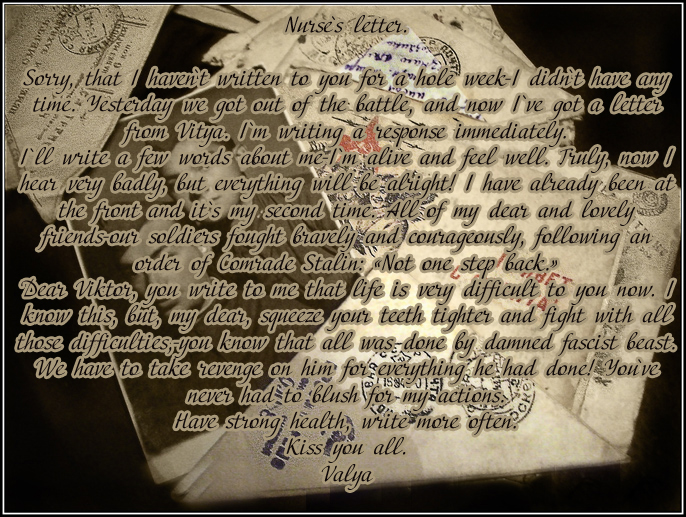 Nurse`s letter.
Sorry, that I haven`t written to you for a hole week-I didn`t have any
time. Yesterday we got out of the battle, and now I`ve got a letter
from Vitya. I`m writing a response immediately.
I`ll write a few words about me-I`m alive and feel well. Truly, now I
hear very badly, but everything will be alright! I have already been at
the front and it`s my second time. All of my dear and lovely
friends-our soldiers fought bravely and courageously, following an
order of Comrade Stalin: «Not one step back.»
Dear Viktor, you write to me that life is very difficult to you now. I
know this, but, my dear, squeeze your teeth tighter and fight with all
those difficulties,-you know that all was.-done by damned fascist beast.
We have to take revenge on him for everything he had done! You`ve
never had to blush for my actions.
Have strong health, write more often.
Kiss you all.
Valya